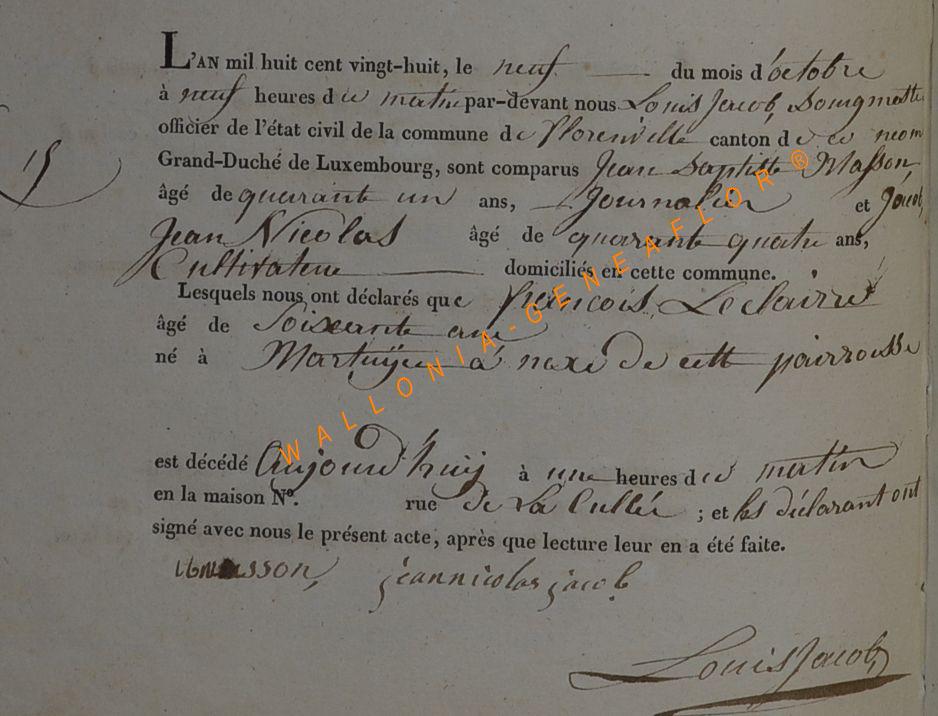 L'AN mil huit cent vingt-huit, le neuf du mois d'octobre
à neuf heures d u matin par-devant nous Louis Jacob, Bourgmestre
officier de l'état civil de la commune de florenville canton d e ce nom
15
Grand-Duché de Luxembourg, sont comparus Jean Baptiste Masson
âgé de quarant un ans, Journalier et Jacob
Jean Nicolas âgé de quarante quatre ans,
Cultivateur domiciliés en cette commune.
Lesquels nous ont déclarés que françois Leclairre
âgé de Soixante ans
né à Martuÿe de cett parroisse
est décédé Aujourd'huÿ à une heures d u matin
en la maison Nº. rue de La Cullée ; et les déclarant ont
signé avec nous le présent acte, après que lecture leur en a été faite.
masson, jean nicolas jacob
Louis Jacob
WALLONIA-GENEAFLOR®